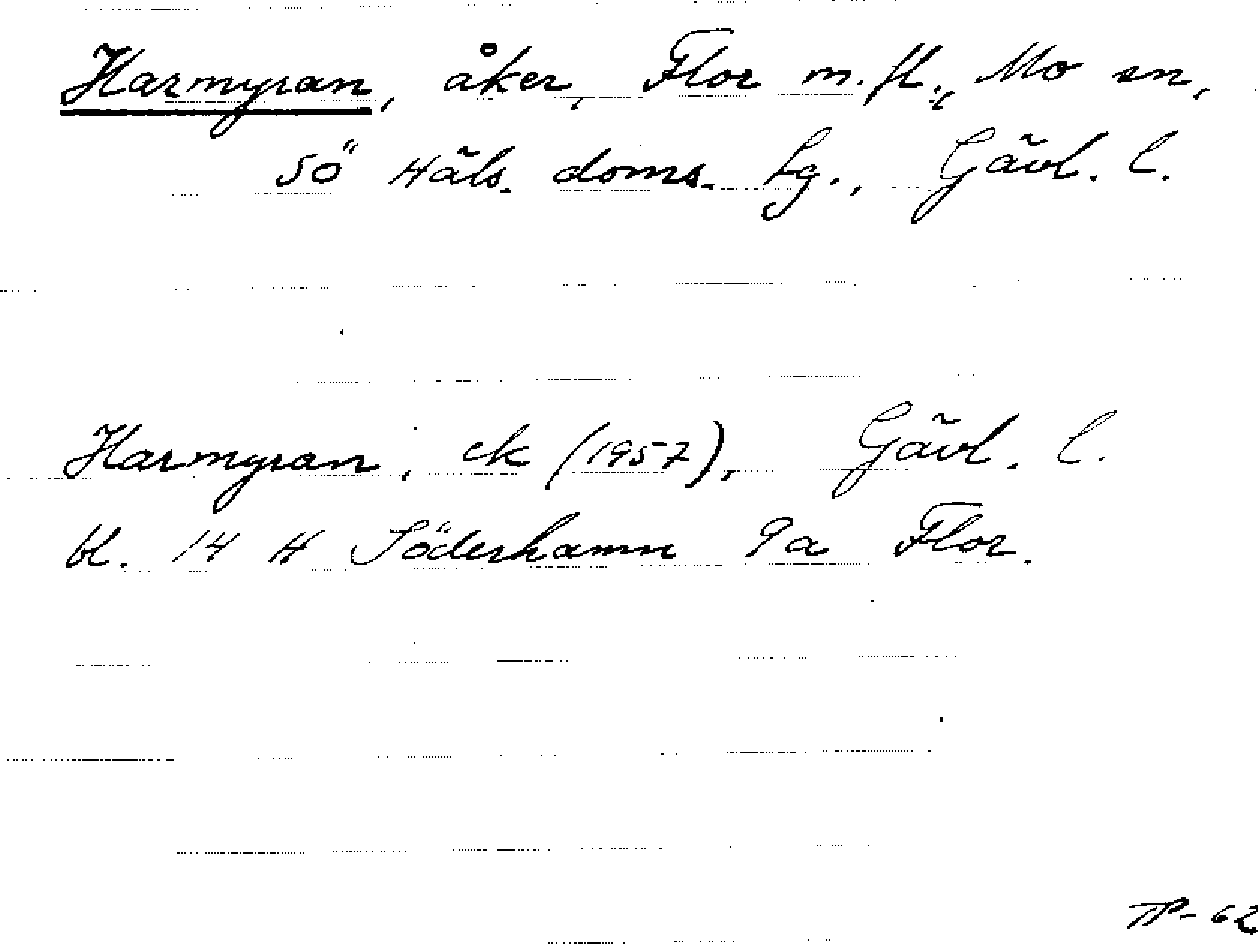 Harmyran, åker, Flor m.fl., Mo sn,
Sö Häls. doms. lg., Gävl. l.
Harmyran, ek (1957), Gävl. l.
bl. 14 H Söderhamn 9a Flor.
TP-62